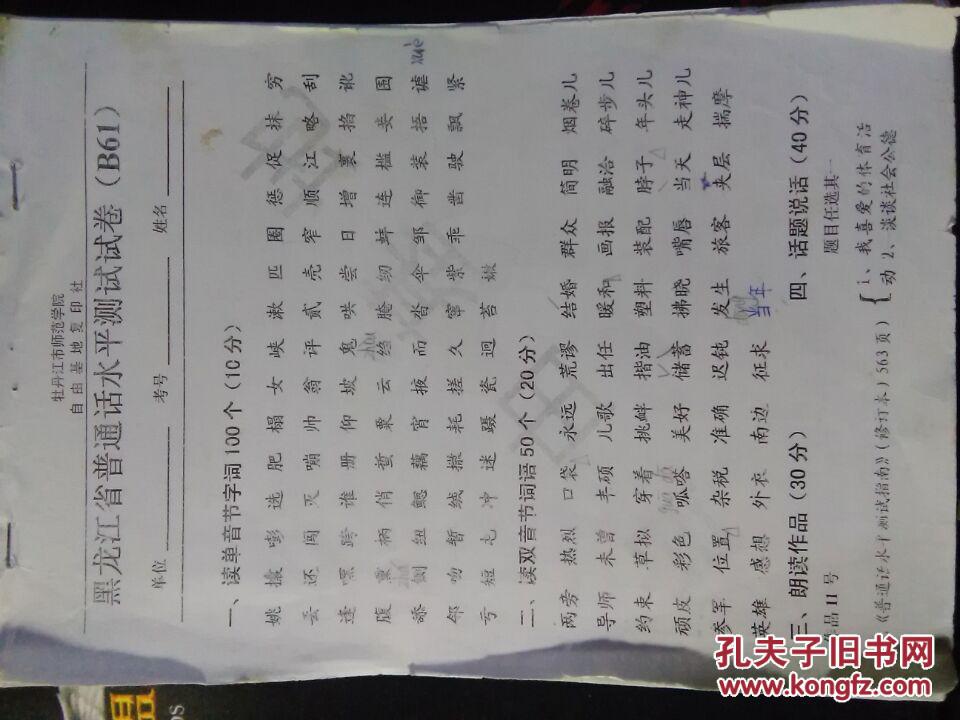 牡丹江市师范学院
自由基地复印社
黑龙江省普通话水平测试试卷（B61）
单位 考号 姓名
一、读单音节字词100个（10分）
姚 撤 嘭 选 肥 榻 女 峡 漱 匹 圈 惩 促 抹 穷
云 还 闯 灭 嘣 帅 翁 评 贰 壳 窄 顺 江 略 刮
逢 嘿 跨 谁 册 仰 坡 鬼 哄 尝 日 增 襄 掐 讹
腹 熏 柄 俏 蜇 粟 云 绉 腌 纫 蚌 连 槛 妾 国
添 侧 纽 鳃 藕 宵 掖 而 沓 伞 邹 卸 装 捂 谑
邻 吻 暂 绒 撒 耗 搓 久 窜 柴 乖 凿 驶 飘 紧
亏 短 屯 冲 迷 蹑 瓷 迥 苔 嫩
xuè
二、读双音节词语50个（20分）
两旁 热烈 口袋 永远 荒谬 结婚 群众 简明 烟卷儿
导师 未曾 丰硕 儿歌 出任 暖和 画报 融洽 碎步儿
约束 草拟 穿着 挑衅 揩油 塑料 装配 脖子 年头儿
顽皮 彩色 呱嗒 美好 储蓄 拂晓 嘴唇 当天 走神儿
参军 位置 杂税 准确 迟钝 发生 旅客 夹层 揣摩
英雄 感想 外衣 南边 征求
当年
三、朗读作品（30分）
作品11号
四、话题说话（40分）
题目任选其一
1、我喜爱的体育活
动 2、谈谈社会公德
《普通话水平测试指南》（修订本）563页）
孔夫子旧书网
www.kongfz.com